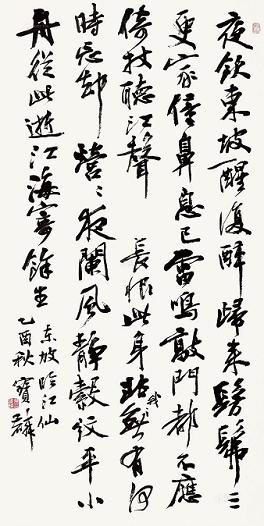 夜飲東坡醒復醉歸來髣髴三
更家僮鼻息已雷鳴敲門都不應
倚杖聽江聲 長恨此身非我有何
時忘却營〻夜闌風靜縠紋平小
舟從此逝江海寄餘生
东坡臨江仙
乙酉秋寶